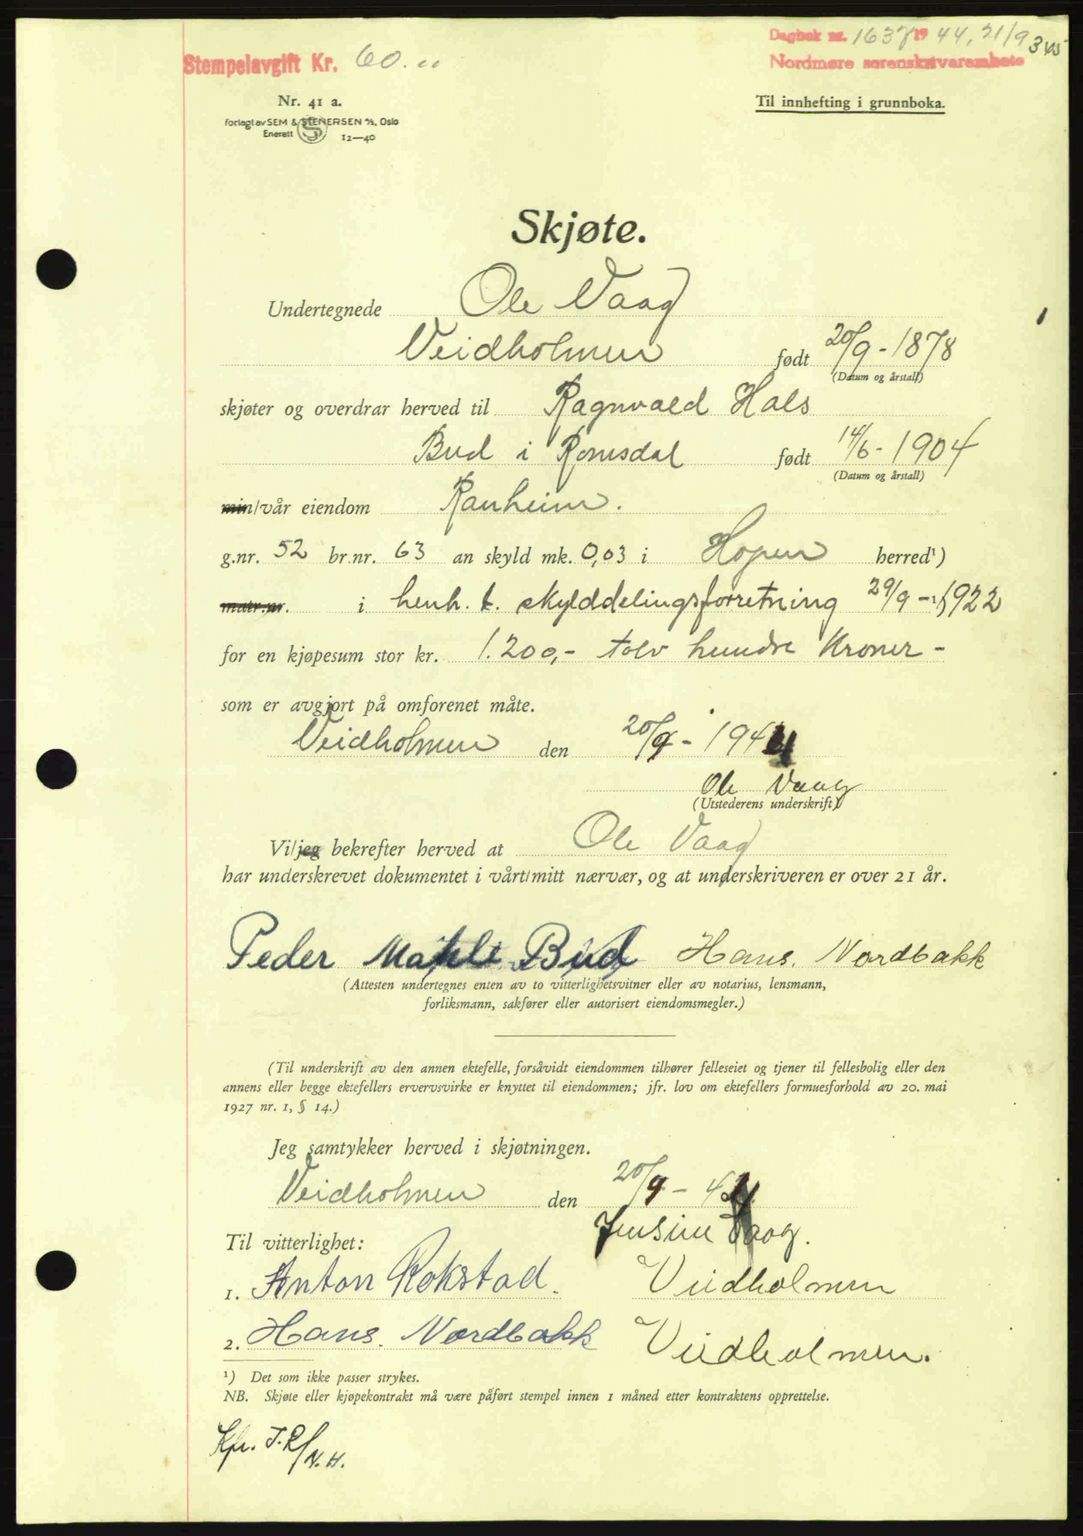 Stempelavgift Kr. 60.00
Dagbok nr. 1637 1944, 21/9
Nordmøre sorenskriverembete
Nr. 41 a.
Forlagt av SEM & STENERSEN A/S, Oslo
Enerett 12—40
Til innhefting i grunnboka.
Skjøte.
Undertegnede Ole Vaag
Veidholmen født 20/9 - 1878
(Datum og årstall)
skjøter og overdrar herved til Ragnvald Hals
Bud i Romsdal født 14/6 - 1904
(Datum og årstall)
min/vår eiendom Ranheim.
g.nr. 52 br.nr. 63 an skyld mk. 0,03 i Hopen herred¹)
matr.nr. i henh. t. skylddelingsforretning 29/9 - 1922
for en kjøpesum stor kr. 1.200,- tolv hundre Kroner -
som er avgjort på omforenet måte.
Veidholmen den 20/9 - 1944
Ole Vaag
(Utstederens underskrift)
Vi/jeg bekrefter herved at Ole Vaag
har underskrevet dokumentet i vårt/mitt nærvær, og at underskriveren er over 21 år.
Peder Bud Hans. Nordbakk
(Attesten undertegnes enten av to vitterlighetsvitner eller av notarius, lensmann,
forliksmann, sakfører eller autorisert eiendomsmegler.)
(Til underskrift av den annen ektefelle, forsåvidt eiendommen tilhører felleseiet og tjener til fellesbolig eller den
annens eller begge ektefellers ervervsvirke er knyttet til eiendommen; jfr. lov om ektefellers formuesforhold av 20. mai
1927 nr. 1, § 14.)
Jeg samtykker herved i skjøtningen.
Veidholmen den 20/9 - 44.
Jensine Vaag.
Til vitterlighet:
1. Anton Rokstad. Veidholmen
2. Hans. Nordbakk Veidholmen.
¹) Det som ikke passer strykes.
NB. Skjøte eller kjøpekontrakt må være påført stempel innen 1 måned etter kontraktens opprettelse.
N.H.